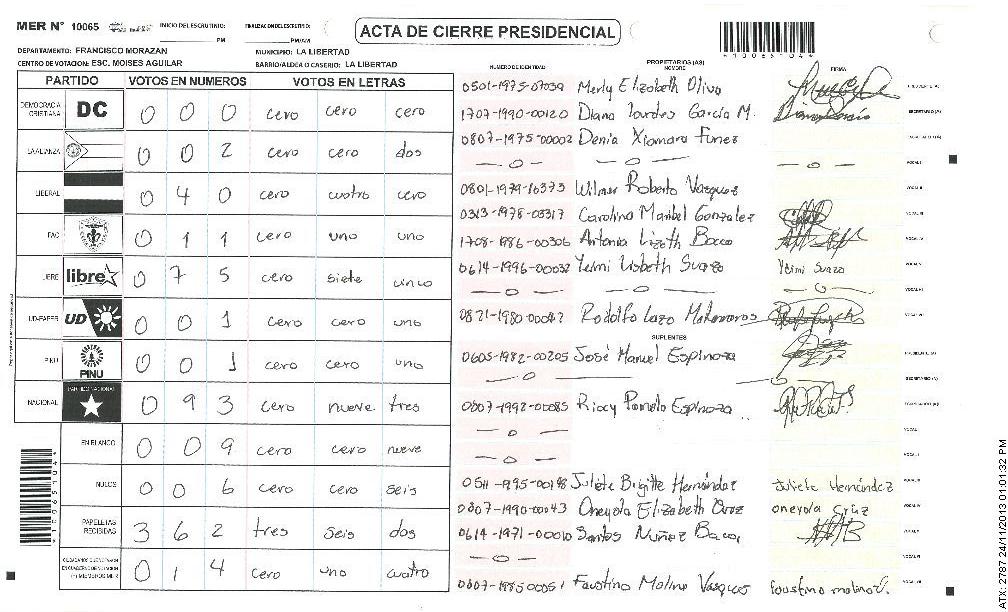 MER N° 10065 INICIO DEL ESCRUTINIO: PM FINALIZACION DEL ESCRUTINIO: PM/AM
ACTA DE CIERRE PRESIDENCIAL
DEPARTAMENTO: FRANCISCO MORAZAN MUNICIPIO: LA LIBERTAD
CENTRO DE VOTACION: ESC. MOISES AGUILAR BARRIO/ALDEA O CASERIO: LA LIBERTAD
PARTIDO VOTOS EN NUMEROS VOTOS EN LETRAS
DEMOCRACIA CRISTIANA DC 0 0 0 cero cero cero
LA ALIANZA 0 0 2 cero cero dos
LIBERAL 0 4 0 cero cuatro cero
FAC 0 1 1 cero uno uno
LIBRE libre 0 7 5 cero siete cinco
UD-FAPER UD 0 0 1 cero cero uno
PINU PINU 0 0 1 cero cero uno
NACIONAL PARTIDO NACIONAL 0 9 3 cero nueve tres
EN BLANCO 0 0 9 cero cero nueve
NULOS 0 0 6 cero cero seis
PAPELETAS RECIBIDAS 3 6 2 tres seis dos
0 1 4 cero uno cuatro
NUMERO DE IDENTIDAD PROPIETARIOS (AS) NOMBRE FIRMA
0501-1975-07039 Merly Elizabeth Oliva
1707-1990-00120 Diana Lourdes García M.
0807-1975-00002 Denia Xiomara Funez
0801-1979-16373 Wilmer Roberto Vasquez
0313-1978-03317 Carolina Maribel Gonzalez
1708-1986-00306 Antonia Lizeth Baca
0614-1996-00032 Yeimi Lisbeth Suazo Yeimi Suazo
0821-1980-00042 Rodolfo Lazo Matamoros
SUPLENTES
0605-1982-00205 José Manuel Espinoza
0807-1992-00085 Riccy Pamela Espinoza
0511-1995-00198 Juliete Brigitte Hernández Juliete Hernández
0807-1990-00043 Oneyda Elizabeth Cruz oneyda Cruz
0614-1971-00010 Santos Nuñez Baca
0807-1985-00051 Faustino Molina Vasquez faustino molina V.
ATX 2787 24/11/2013 01:01:32 PM